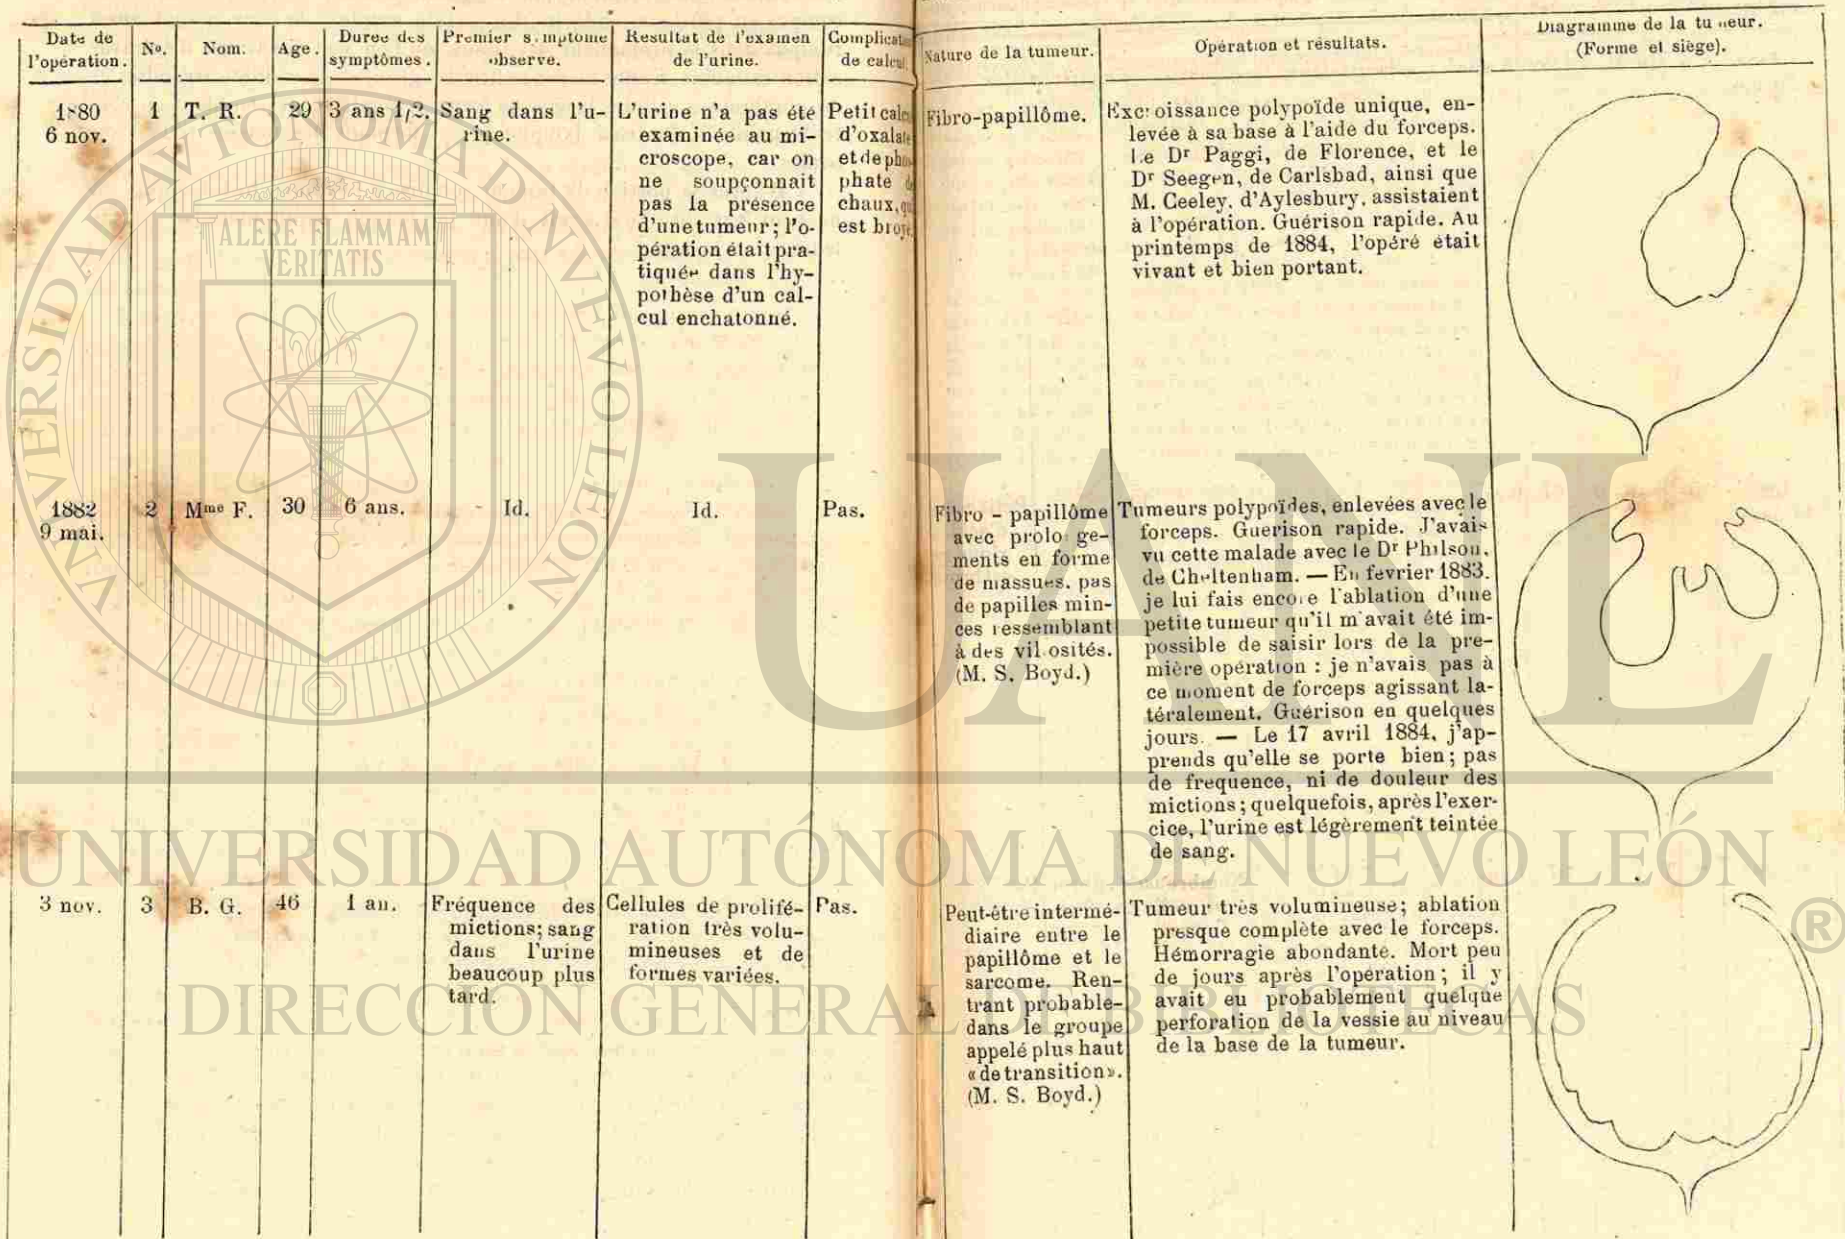 Date de
l'opération.
Nº.
Nom.
Age.
Durée des
symptômes.
Premier symptôme
observé.
Résultat de l'examen
de l'urine.
Complicat
de calcul
Nature de la tumeur.
Opération et résultats.
Diagramme de la tumeur.
(Forme et siège).
1880
6 nov.
1
T. R.
29
3 ans 1/2.
Sang dans l'u-
rine.
L'urine n'a pas été
examinée au mi-
croscope, car on
ne soupçonnait
pas la présence
d'une tumeur; l'o-
pération était pra-
tiquée dans l'hy-
pothèse d'un cal-
cul enchatonné.
Petit calc
d'oxalate
et de phos
phate
chaux, qu
est broyé
Fibro-papillôme.
Excroissance polypoïde unique, en-
levée à sa base à l'aide du forceps.
Le Dr Paggi, de Florence, et le
Dr Seegen, de Carlsbad, ainsi que
M. Ceeley, d'Aylesbury, assistaient
à l'opération. Guérison rapide. Au
printemps de 1884, l'opéré était
vivant et bien portant.
1882
9 mai.
2
Mme F.
30
6 ans.
Id.
Id.
Pas.
Fibro-papillôme
avec prolonge-
ments en forme
de massues, pas
de papilles min-
ces ressemblant
à des villosités.
(M. S. Boyd.)
Tumeurs polypoïdes, enlevées avec le
forceps. Guérison rapide. J'avais
vu cette malade avec le Dr Philson,
de Cheltenham. — En février 1883,
je lui fais encore l'ablation d'une
petite tumeur qu'il m'avait été im-
possible de saisir lors de la pre-
mière opération : je n'avais pas à
ce moment de forceps agissant la-
téralement. Guérison en quelques
jours. — Le 17 avril 1884, j'ap-
prends qu'elle se porte bien; pas
de fréquence, ni de douleur des
mictions; quelquefois, après l'exer-
cice, l'urine est légèrement teintée
de sang.
3 nov.
3
B. G.
46
1 an.
Fréquence des
mictions; sang
dans l'urine
beaucoup plus
tard.
Cellules de prolifé-
ration très volu-
mineuses et de
formes variées.
Pas.
Peut-être intermé-
diaire entre le
papillôme et le
sarcome. Ren-
trant probable-
dans le groupe
appelé plus haut
«de transition».
(M. S. Boyd.)
Tumeur très volumineuse; ablation
presque complète avec le forceps.
Hémorragie abondante. Mort peu
de jours après l'opération; il y
avait eu probablement quelque
perforation de la vessie au niveau
de la base de la tumeur.
UNIVERSIDAD AUTONOMA DE NUEVO LEON
ALERE FLAMMAM
VERITATIS
UANL
UNIVERSIDAD AUTÓNOMA DE NUEVO LEÓN
®
DIRECCIÓN GENERAL DE BIBLIOTECAS